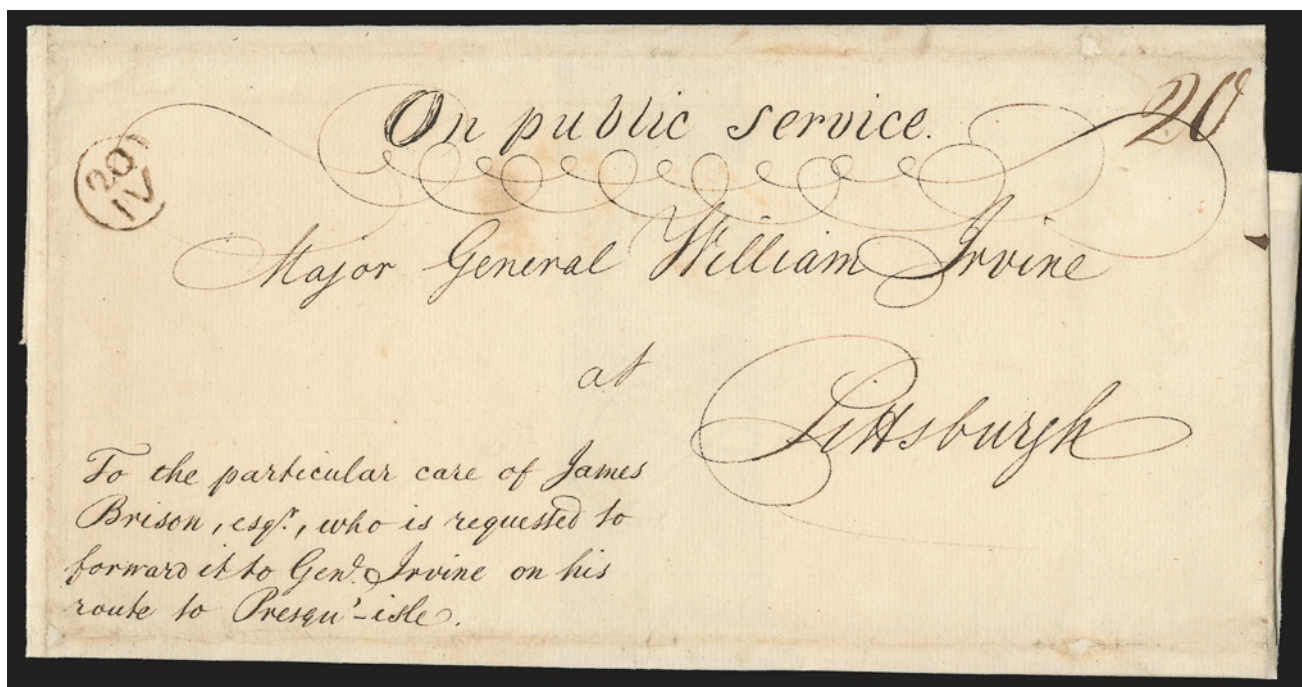 On public service.
20
20
IV
Major General William Irvine
at
Pittsburgh
To the particular care of James
Brison, esqr., who is requested to
forward it to Genl. Irvine on his
route to Presqu'-isle.